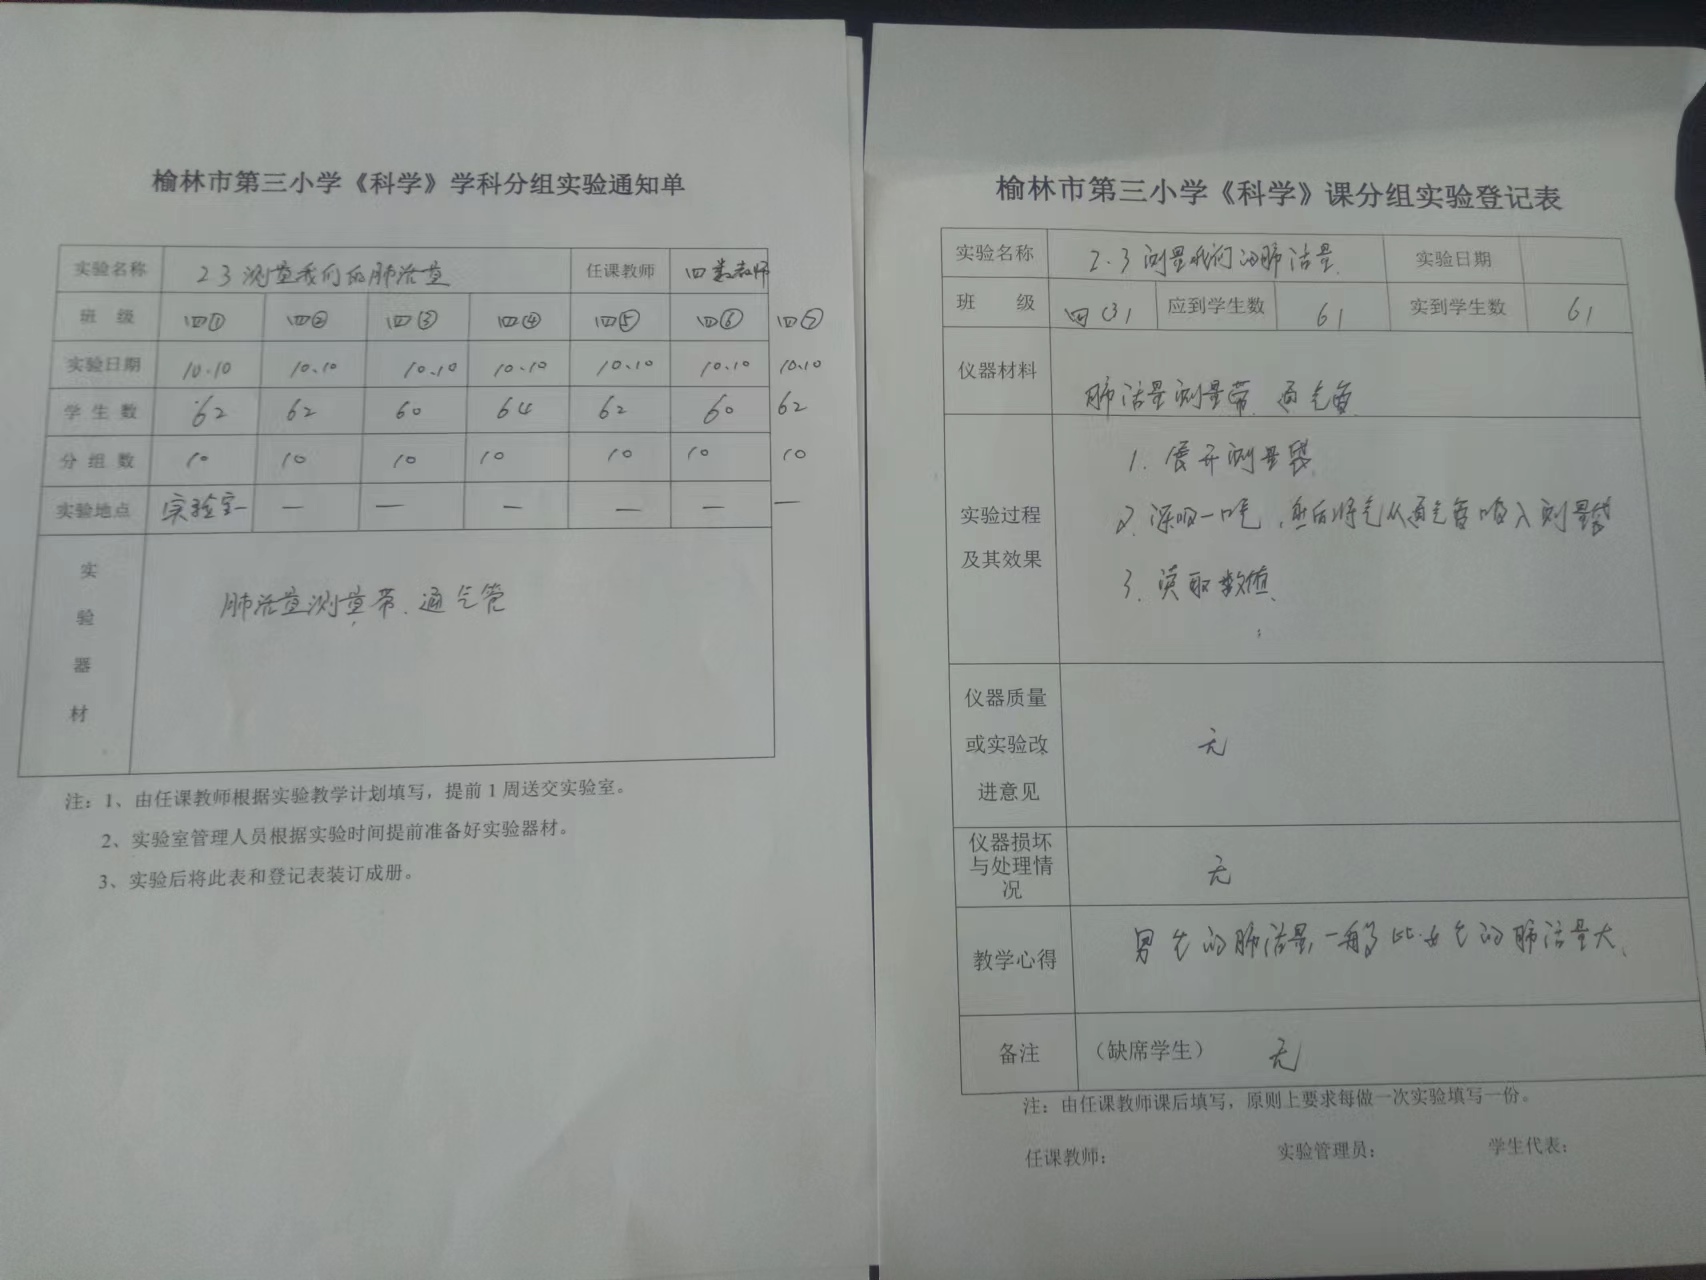 榆林市第三小学《科学》学科分组实验通知单
实验名称 2.3 测量我们的肺活量 任课教师 四数教师
班 级 四① 四② 四③ 四④ 四⑤ 四⑥ 四⑦
实验日期 10.10 10.10 10.10 10.10 10.10 10.10 10.10
学生数 62 62 60 64 62 60 62
分组数 10 10 10 10 10 10 10
实验地点 实验室一 — — — — — —
实验器材 肺活量测量带、通气管
注：1、由任课教师根据实验教学计划填写，提前1周送交实验室。
2、实验室管理人员根据实验时间提前准备好实验器材。
3、实验后将此表和登记表装订成册。
榆林市第三小学《科学》课分组实验登记表
实验名称 2.3 测量我们的肺活量 实验日期
班 级 四(3) 应到学生数 61 实到学生数 61
仪器材料 肺活量测量带、通气管
实验过程
及其效果
1. 展开测量袋
2. 深吸一口气，然后将气从通气管吹入测量袋
3. 读取数值
仪器质量
或实验改
进意见
无
仪器损坏
与处理情
况
无
教学心得 男生的肺活量一般比女生的肺活量大
备注 （缺席学生） 无
注：由任课教师课后填写，原则上要求每做一次实验填写一份。
任课教师： 实验管理员： 学生代表：